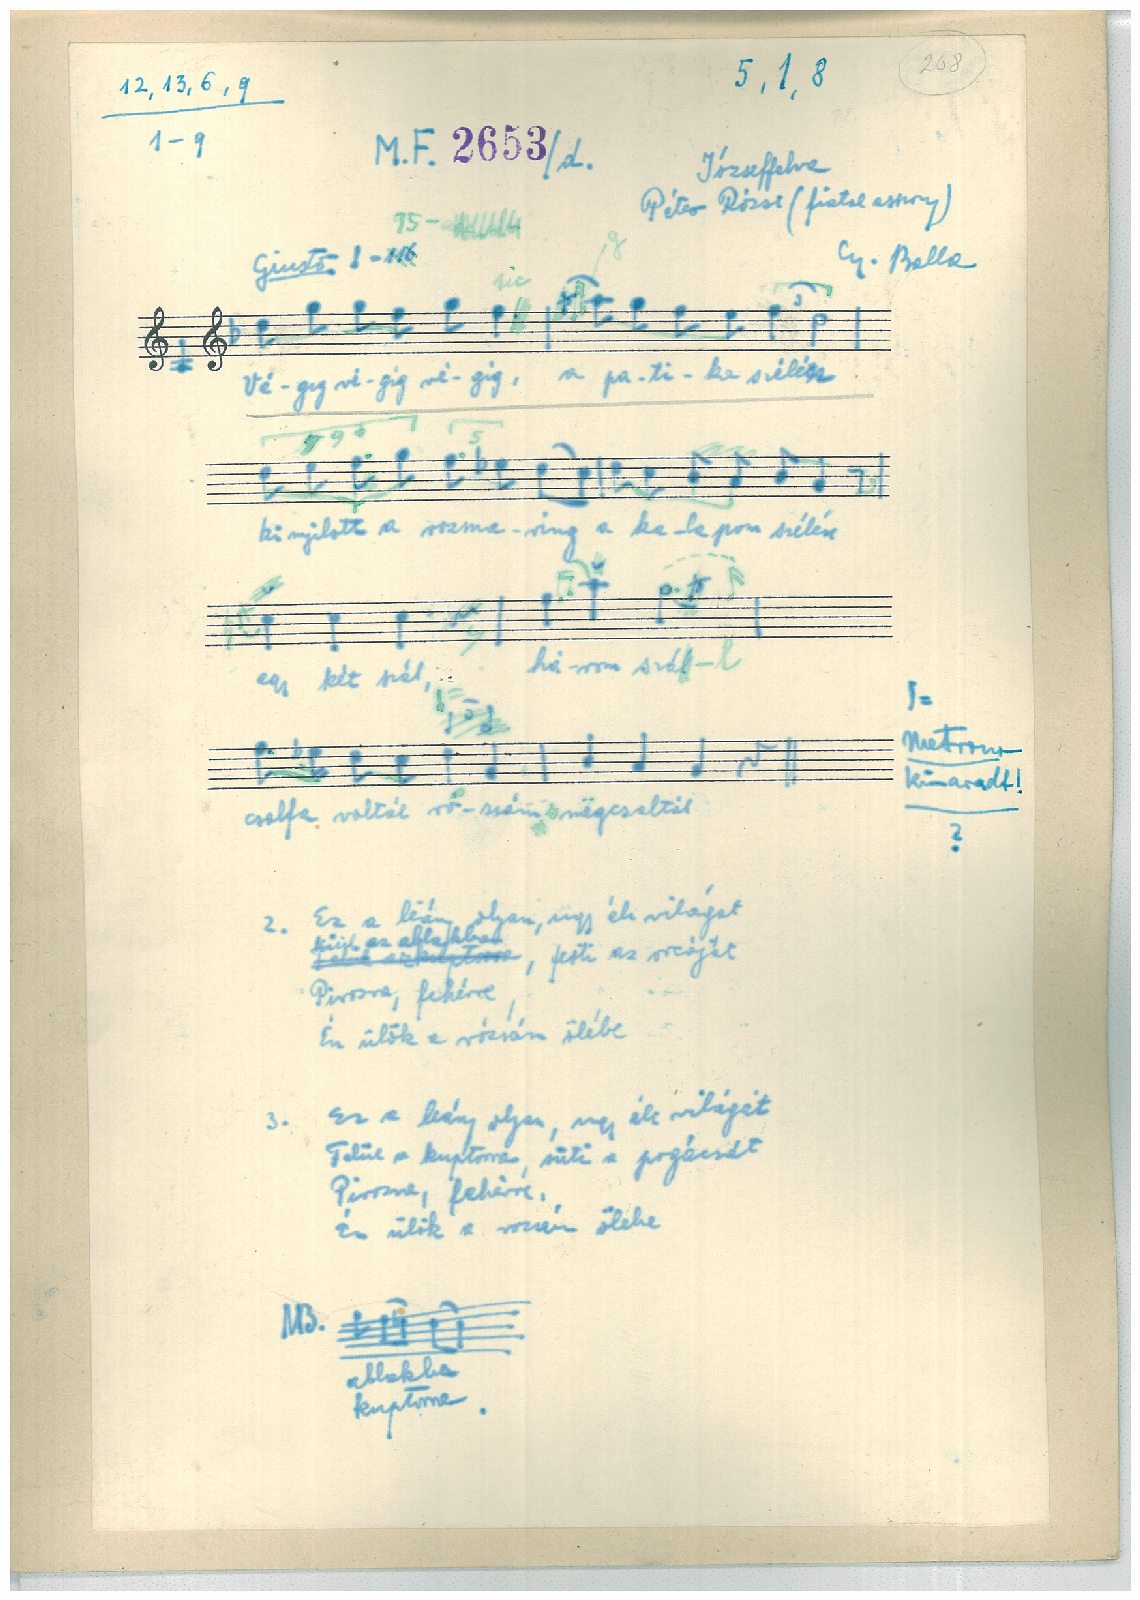 12, 13, 6, 9
5, 1, 8
268
1-9
M.F. 2653/d.
Józseffalva
Péter Rózsi (fiatal asszony)
Gy. Balla
95-
Giusto
sic
Vé-gig vé-gig vé-gig, a pa-ti-ka szélén
kinyilott a rozma-ring a ka-la pom szélén
5
egy két szál, há-rom szál-l
csalfa voltál ró-zsám megcsaltál
Metronom
kimaradt!
?
2. Ez a leány olyan, ugy éli világát
Kiül az ablakban
, festi az orcáját
Pirosra, fehérre,
Én ülök a rózsám ölébe
3. Ez a leány olyan, ugy éli világát
Felül a kuptorra, süti a pogácsát
Pirosra, fehérre,
Én ülök a rozsám ölebe
NB.
ablakba
kuptorra.